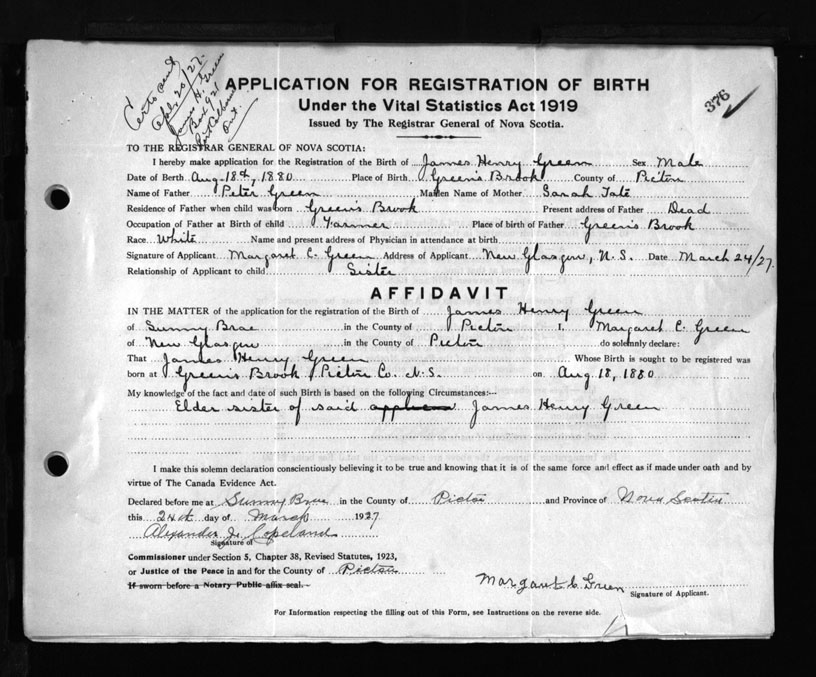 Certo sent
Apl. 20/27.
James H. Green
Box 921
Port Colborne
Ont.
376
APPLICATION FOR REGISTRATION OF BIRTH
Under the Vital Statistics Act 1919
Issued by The Registrar General of Nova Scotia.
TO THE REGISTRAR GENERAL OF NOVA SCOTIA:
I hereby make application for the Registration of the Birth of James Henry Green Sex Male
Date of Berth Aug. 18th, 1880 Place of Birth Green's Brook County of Pictou
Name of Father Peter Green Maiden Name of Mother Sarah Tate
Residence of Father when child was born Green's Brook Present address of Father Dead
Occupation of Father at Birth of child Farmer Place of birth of Father Green's Brook
Race White Name and present address of Physician in attendance at birth
Signature of Applicant Margaret C. Green Address of Applicant New Glasgow, N.S. Date March 24/27.
Relationship of Applicant to child Sister
AFFIDAVIT
IN THE MATTER of the application for the registration of the Birth of James Henry Green
of Sunny Brae in the County of Pictou I, Margaret C. Green
of New Glasgow in the County of Pictou do solemnly declare:
That James Henry Green Whose Birth is sought to be registered was
born at Green's Brook Pictou Co. N.S. on Aug 18, 1880
My knowledge of the fact and date of such Birth is based on the following Circumstances:--
Elder sister of said James Henry Green
I make this solemn declaration conscientiously believing it to be true and knowing that it is of the same force and effect as if made under oath and by
virtue of The Canada Evidence Act.
Declared before me at Sunny Brae in the County of Pictou and Province of Nova Scotia
this 24th day of March 1927
Alexander J. Copeland
Signature of
Commissioner under Section 5, Chapter 38, Revised Statutes, 1923,
or Justice of the Peace in and for the County of Pictou
If sworn before a Notary Public affix seal.
Margaret C. Green
Signature of Applicant.
For Information respecting the filling out of this Form, see Instructions on the reverse side.